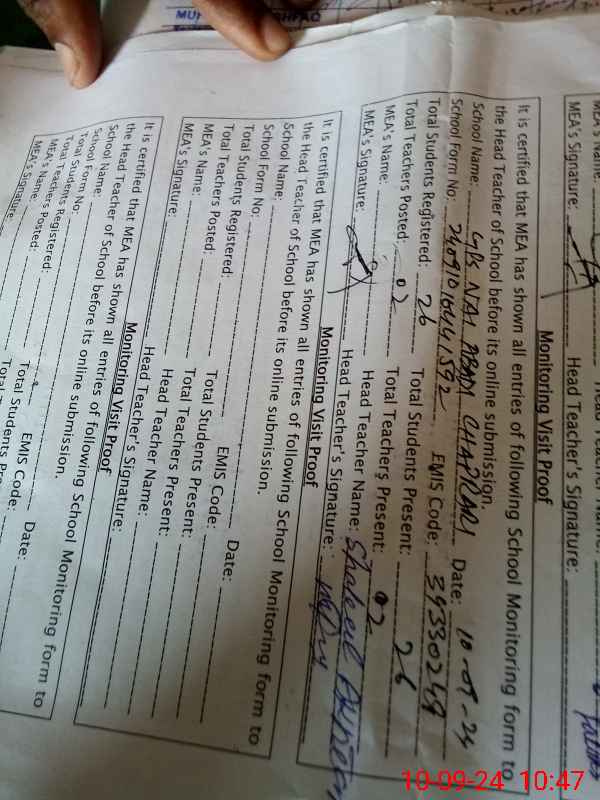 MEA's Name:
MEA's Signature: Head Teacher's Signature:
Monitoring Visit Proof
It is certified that MEA has shown all entries of following School Monitoring form to
the Head Teacher of School before its online submission.
School Name: GPS NAI ABADI CHAPRARI Date: 10-09-24
School Form No: EMIS Code: 39330249
Total Students Registered: 26 Total Students Present: 26
Total Teachers Posted: 02 Total Teachers Present: 02
MEA's Name: Head Teacher Name: Shakeel
MEA's Signature: Head Teacher's Signature:
Monitoring Visit Proof
It is certified that MEA has shown all entries of following School Monitoring form to
the Head Teacher of School before its online submission.
School Name: Date:
School Form No: EMIS Code:
Total Students Registered: Total Students Present:
Total Teachers Posted: Total Teachers Present:
MEA's Name: Head Teacher Name:
MEA's Signature: Head Teacher's Signature:
Monitoring Visit Proof
It is certified that MEA has shown all entries of following School Monitoring form to
the Head Teacher of School before its online submission.
School Name: Date:
School Form No: EMIS Code:
Total Students Registered: Total Students
Total Teachers Posted:
MEA's Name:
MEA's Signature
10-09-24 10:47